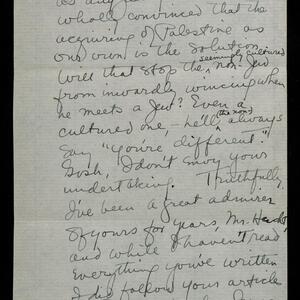 wholly convinced that the
acquiring of Palestine as
our own is the solution.
Will that stop the seemingly cultured non-Jew
from inwardly wincing when
he meets a Jew? Even a
cultured one – he'll (the non) always
say "you're different."
Gosh, I don't envy your
undertaking. Truthfully,
I've been a great admirer
of yours for years, Mr. Hecht,
and while I haven't read
everything you've written
I did follow your article